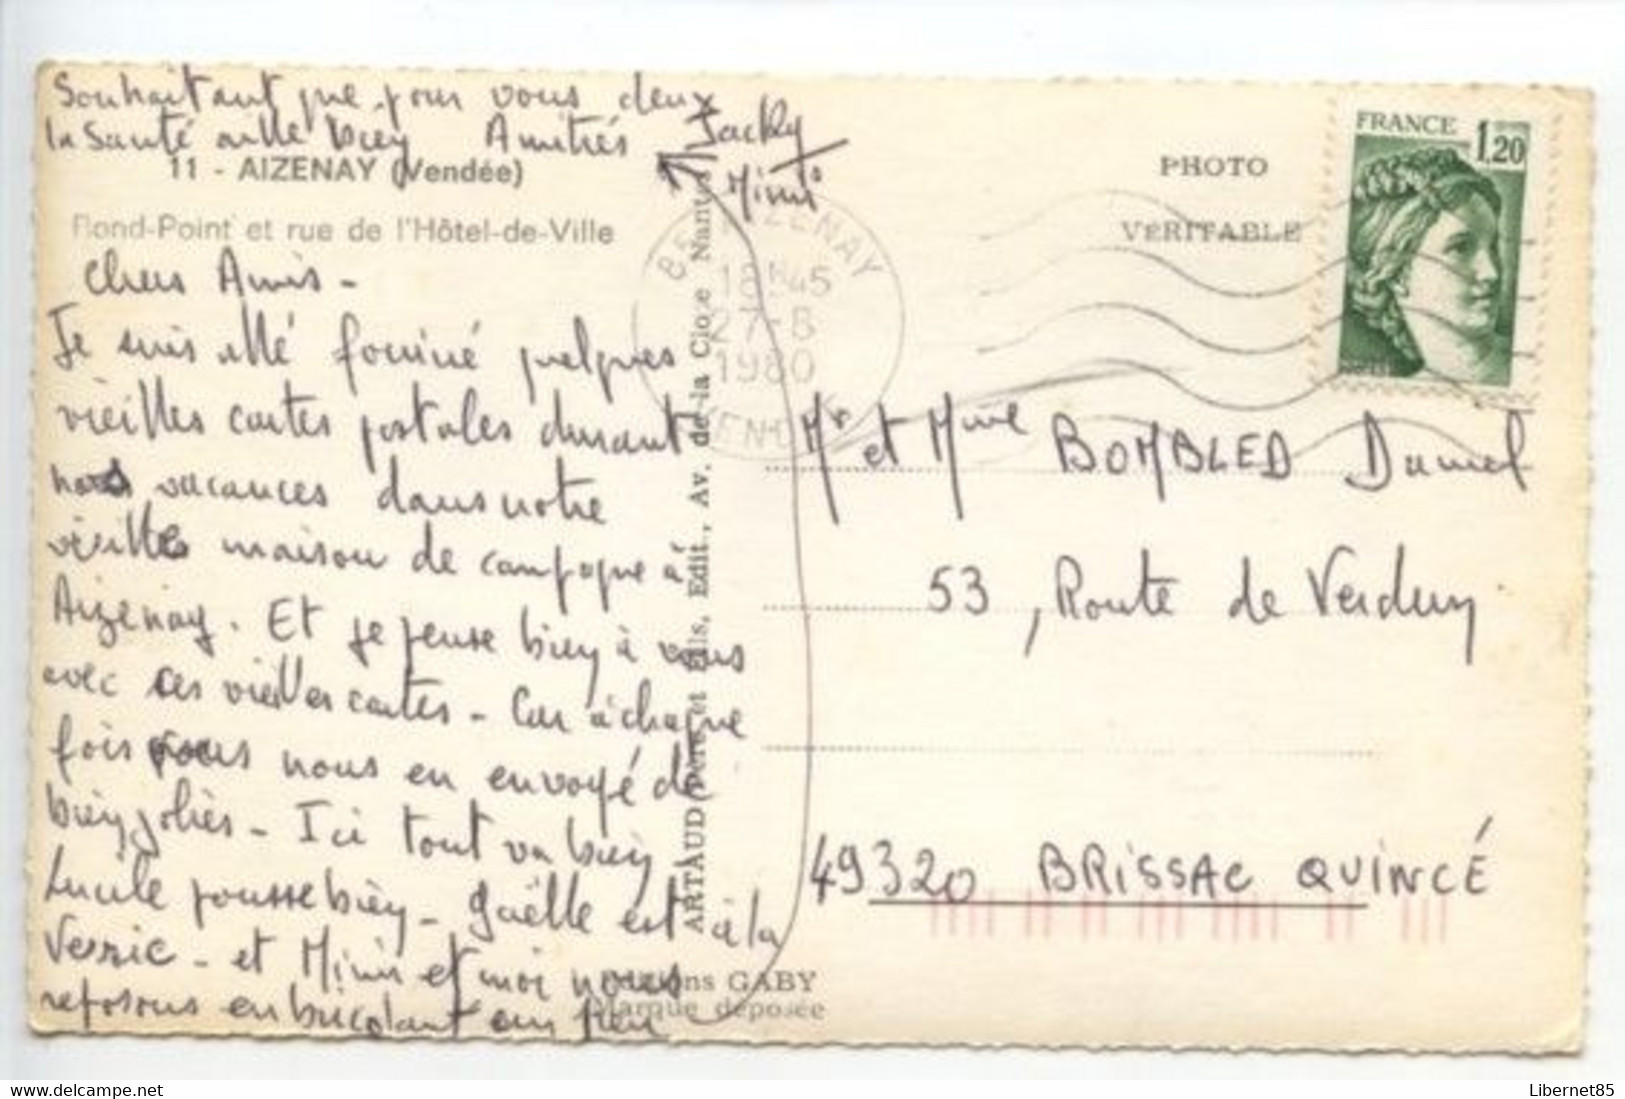 Souhaitant que pour vous deux
la Santé aille bien Amitiés Jacky
Mimi
11 - AIZENAY (Vendée)
Rond-Point et rue de l'Hôtel-de-Ville
Chers Amis -
Je suis allé fouiné quelques
vieilles cartes postales durant
nos vacances dans notre
vieille maison de campagne à
Aizenay. Et je pense bien à vous
avec ces vieilles cartes - Car à chaque
fois vous nous en envoyé de
bien jolies - Ici tout va bien
Lucile pousse bien - Gaëlle est à la
et Mimi et moi nous
reposons en bricolant un peu
ARTAUD Père et Fils, Edit., Av. de la Cloze Nantes
Editions GABY
Marque déposée
PHOTO
VÉRITABLE
FRANCE
1,20
85 AIZENAY
18H45
27-8
1980
VENDEE
Mr et Mme BOMBLED Daniel
53, Route de Verdun
49320 BRISSAC QUINCÉ
Libernet85